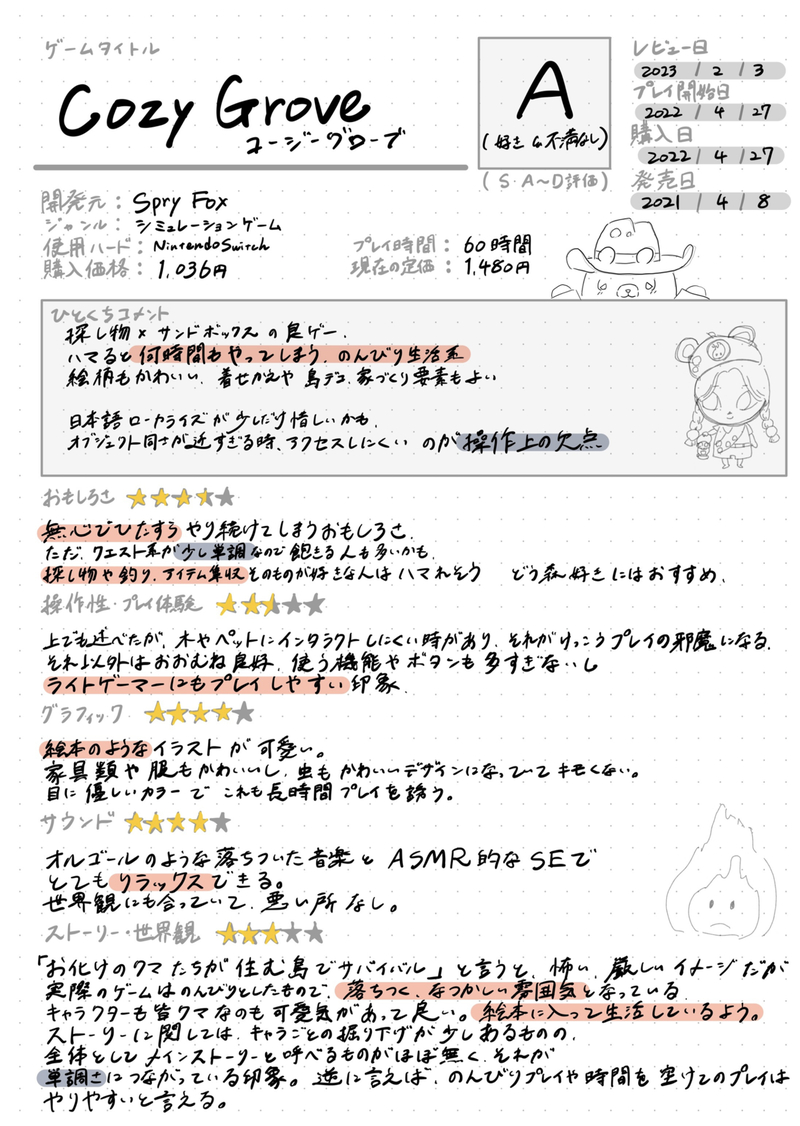 ゲームタイトル
Cozy Grove
コージーグローブ
A
(好き&不満なし)
(S・A～D評価)
レビュー日
2023 / 2 / 3
プレイ開始日
2022 / 4 / 27
購入日
2022 / 4 / 27
発売日
2021 / 4 / 8
開発元：Spry Fox
ジャンル：シミュレーションゲーム
使用ハード：NintendoSwitch
購入価格：1,036円
プレイ時間：60時間
現在の定価：1,480円
ひとくちコメント
探し物×サンドボックスの良ゲー.
ハマると何時間もやってしまう.のんびり生活系
絵柄もかわいい.着せかえや島デコ.家づくり要素もよい
日本語ローカライズが少しだけ惜しいかも.
オブジェクト同士が近すぎる時、アクセスしにくい のが操作上の欠点
おもしろさ ★★★★★
無心でひたすらやり続けてしまうおもしろさ.
ただ.クエスト系が少し単調なので飽きる人も多いかも.
探し物や釣り.アイテム集収そのものが好きな人はハマれそう どう森好きにはおすすめ.
操作性・プレイ体験 ★★★★★
上でも述べたが.木やペットにインタラクトしにくい時があり.それがけっこうプレイの邪魔になる.
それ以外はおおむね良好.使う機能やボタンも多すぎないし
ライトゲーマーにもプレイしやすい印象.
グラフィック ★★★★★
絵本のようなイラストが可愛い。
家具類や服もかわいいし.虫もかわいいデザインになっていてキモくない。
目に優しいカラーでこれも長時間プレイを誘う。
サウンド ★★★★★
オルゴールのような落ちついた音楽とASMR的なSEで
とてもリラックスできる。
世界観にも合っていて.悪い所なし。
ストーリー・世界観 ★★★★★
「お化けのクマたちが住む島でサバイバル」と言うと.怖い.厳しいイメージだが
実際のゲームはのんびりとしたもので.落ちつく.なつかしい雰囲気となっている.
キャラクターも皆クマなのも可愛気があって良い。絵本に入って生活しているよう。
ストーリーに関しては.キャラごとの掘り下げが少しあるものの.
全体としてメインストーリーと呼べるものがほぼ無く.それが
単調さにつながっている印象。逆に言えば.のんびりプレイや時間を空けてのプレイは
やりやすいと言える。